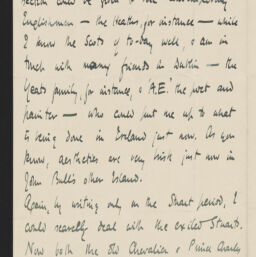 section could be given to some
Englishmen — the Heaths, for instance — while
I know the Scots of to-day well, & am in
touch with many friends in Dublin — the
Yeats family, for instance, & A.E. the poet and
painter — who could put me up to what
is being done in Ireland just now. As you
know, aesthetics are very brisk just now in
John Bull's other Island.
Again, by writing only on the Stuart period, I
could scarcely deal with the exiled Stuarts.
Now both the Old Chevalier & Prince Charles